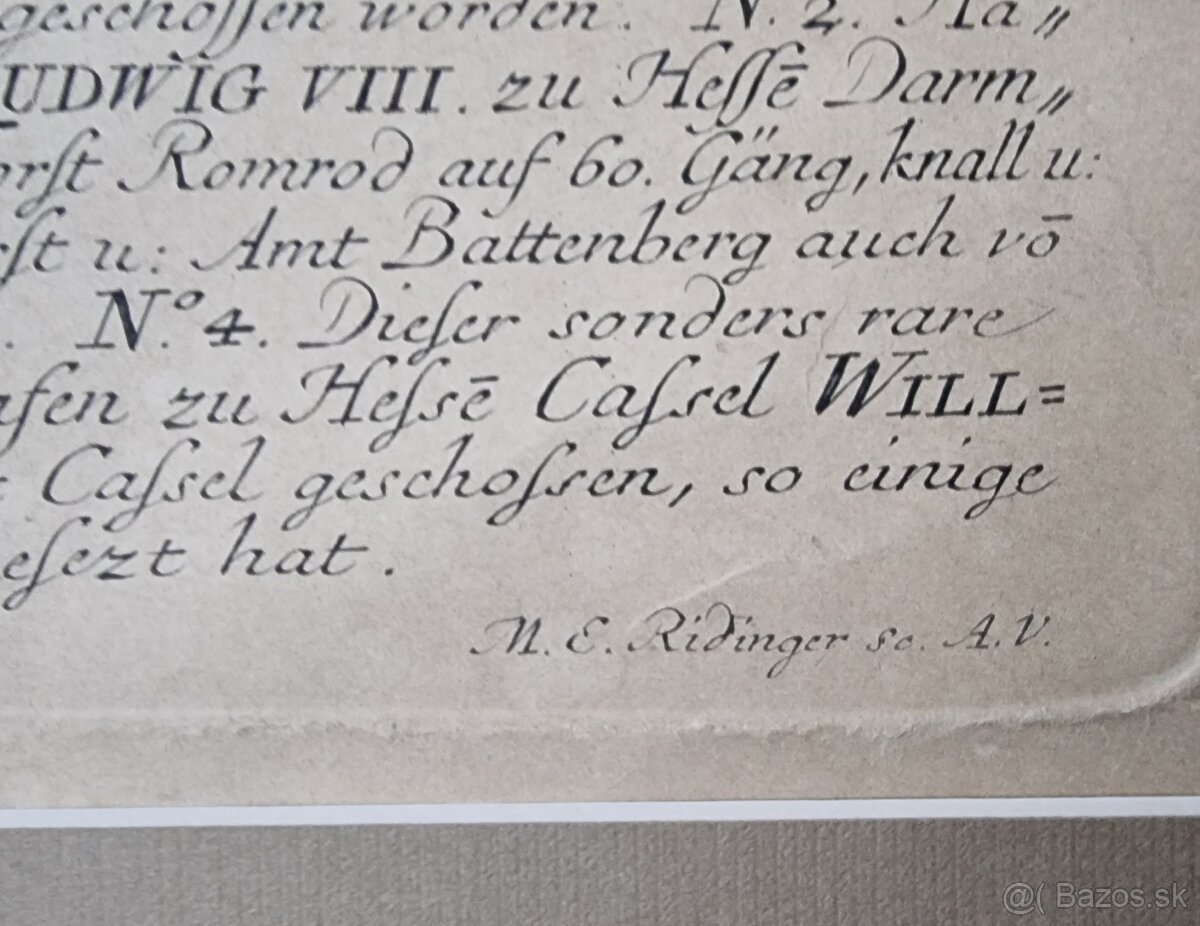 geschoſſen worden. N. 2. Ha„
LUDWIG VIII. zu Heſſē Darm„
orſt Romrod auf 60. Gäng, knall u:
rſt u: Amt Battenberg auch vō
. N.º 4. Dieſer sonders rare
afen zu Heſsē Caſsel WILL=
: Caſsel geschoſsen, so einige
eſezt hat.
M. E. Ridinger sc. A.V.
@( Bazos.sk